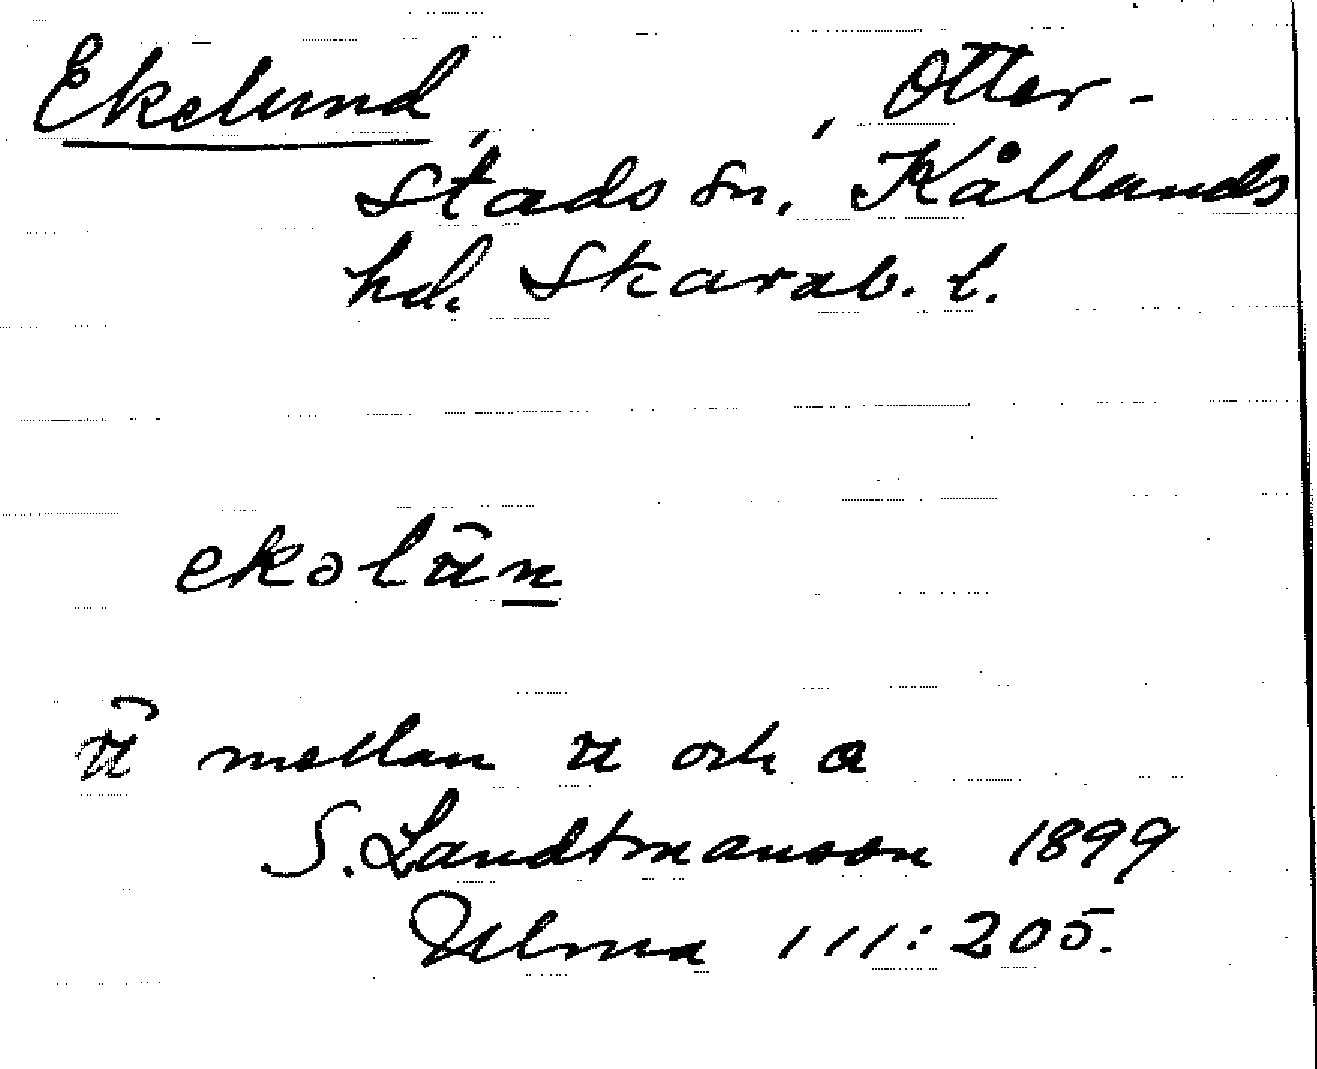 Ekelund, , Otter-
stads sn, Kållands
hd. Skarab. l.
ekəlu͡n̲
u͡ mellan u och a
S. Landtmanson 1899
Ulma 111:205.